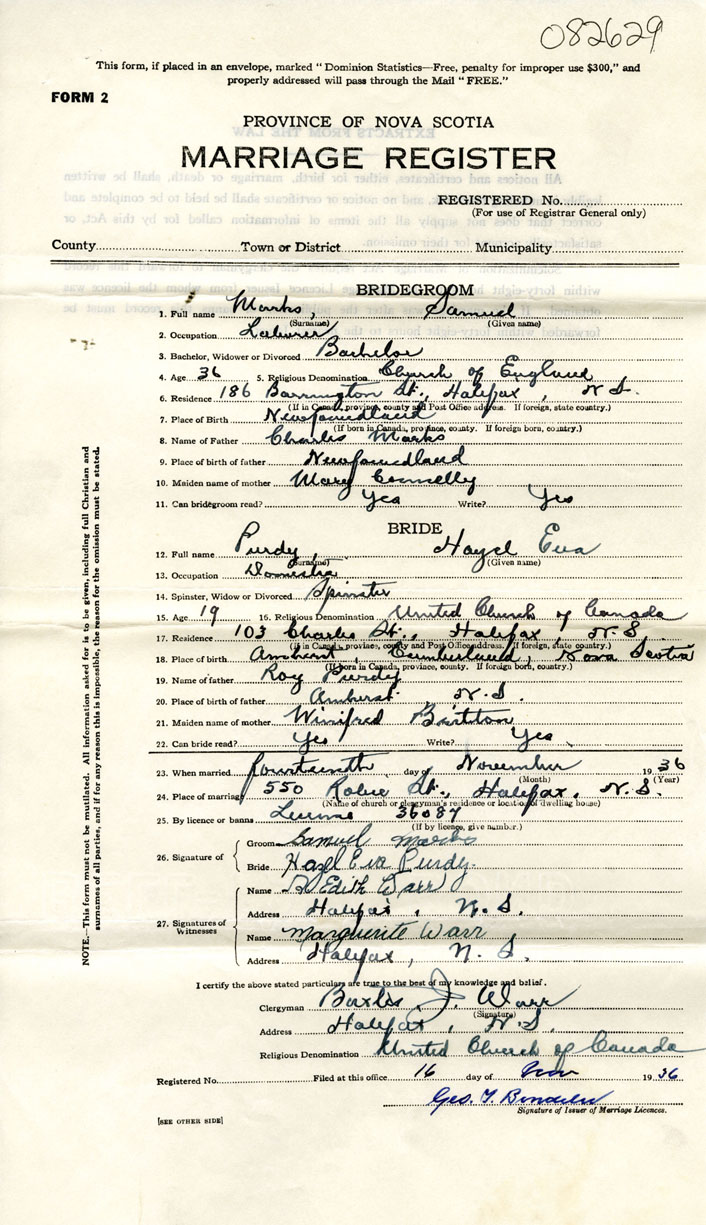 082629
This form, if placed in an envelope, marked "Dominion Statistics—Free, penalty for improper use $300," and
properly addressed will pass through the Mail "FREE."
FORM 2
PROVINCE OF NOVA SCOTIA
MARRIAGE REGISTER
REGISTERED No.
(For use of Registrar General only)
County Town or District Municipality
BRIDEGROOM
1. Full name Marks, Samuel
(Surname) (Given name)
2. Occupation Laborer
3. Bachelor, Widower or Divorced Bachelor
4. Age 36 5. Religious Denomination Church of England
6. Residence 186 Barrington St., Halifax, N.S.
(If in Canada, province, county and Post Office address. If foreign, state country.)
7. Place of Birth Newfoundland
(If born in Canada, province, county. If foreign born, country.)
8. Name of Father Charles Marks
9. Place of birth of father Newfoundland
10. Maiden name of mother Mary Connelly
11. Can bridegroom read? Yes Write? Yes
BRIDE
12. Full name Purdy Hazel Eva
(Surname) (Given name)
13. Occupation Domestic
14. Spinster, Widow or Divorced Spinster
15. Age 19 16. Religious Denomination United Church of Canada
17. Residence 103 Charles St., Halifax, N.S.
(If in Canada, province, county and Post Office address. If foreign, state country.)
18. Place of birth Amherst, Cumberland, Nova Scotia
(If born in Canada, province, county. If foreign born, country.)
19. Name of father Roy Purdy
20. Place of birth of father Amherst N.S.
21. Maiden name of mother Winifred Britton
22. Can bride read? Yes Write? Yes
23. When married Fourteenth day of November 1936
(Month) (Year)
24. Place of marriage 550 Robie St., Halifax, N.S.
(Name of church or clergyman's residence or location of dwelling house)
25. By licence or banns License 36087
(If by licence, give number.)
26. Signature of Groom Samuel Marks
Bride Hazel Eva Purdy.
27. Signatures of Witnesses
Name Edith Warr
Address Halifax, N.S.
Name Marguerite Warr
Address Halifax, N.S.
I certify the above stated particulars are true to the best of my knowledge and belief.
Clergyman J. Warr
(Signature)
Address Halifax, N.S.
Religious Denomination United Church of Canada
Registered No. Filed at this office 16 day of Nov 1936
Geo. T.
Signature of Issuer of Marriage Licences.
[SEE OTHER SIDE]
NOTE.—This form must not be mutilated. All information asked for is to be given, including full Christian and
surnames of all parties, and if for any reason this is impossible, the reason for the omission must be stated.